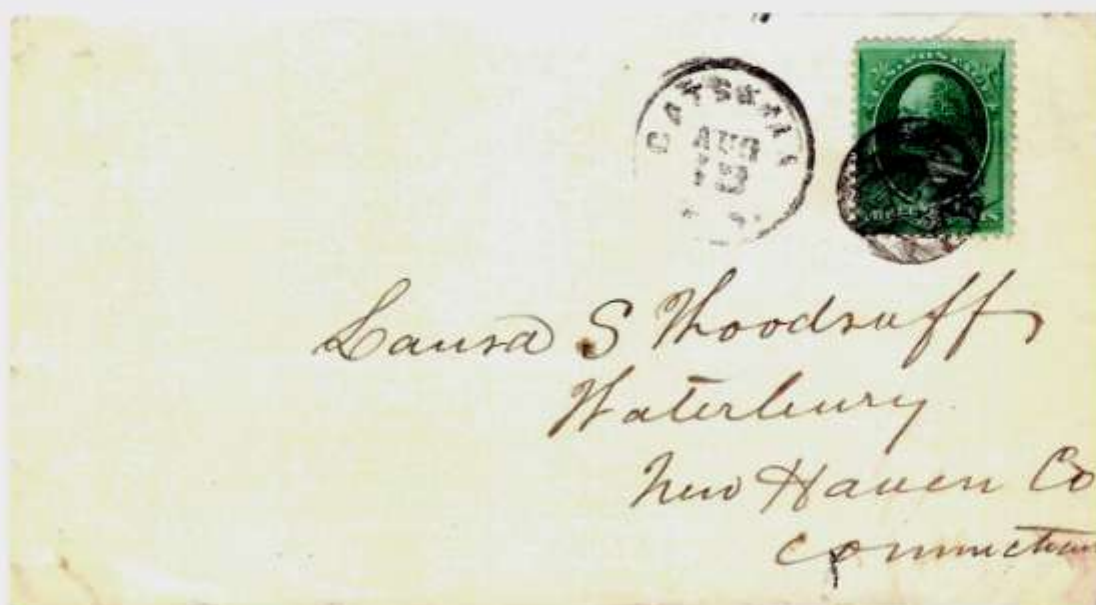 CATSKILL
AUG
13
U.S. POSTAGE
Laura S Woodruff
Waterbury
New Haven Co
Connecticu